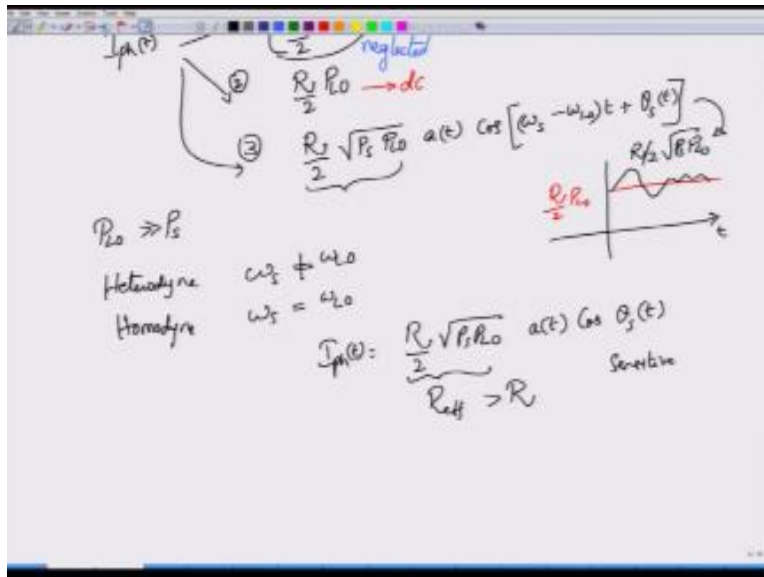 I_ph(t)
2
neglected
② R/2 P_LO → dc
③ R/2 √(P_s P_LO) a(t) Cos [(ω_s − ω_LO)t + θ_s(t)]
R/2 √(P_s P_LO)
R/2 P_LO
t
P_LO ≫ P_s
Heterodyne ω_s ≠ ω_LO
Homodyne ω_s = ω_LO
I_ph(t) = R/2 √(P_s P_LO) a(t) Cos θ_s(t)
Sensitive
R_eff > R